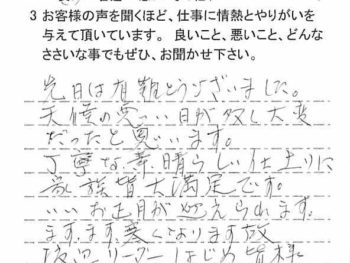 3 お客様の声を聞くほど、仕事に情熱とやりがいを
与えて頂いています。良いこと、悪いこと、どんな
ささいな事でもぜひ、お聞かせ下さい。
先日は有難とうございました。
天候の悪い日が多く大変
だったと思います。
丁寧な素晴らしい仕上りに
家族皆大満足です。
いいお正月が迎えられます。
ます、ます寒くなります故
リーダーはじめ皆様